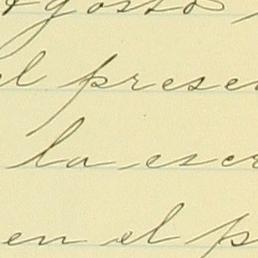 Agosto
el presen
la escr
en el p